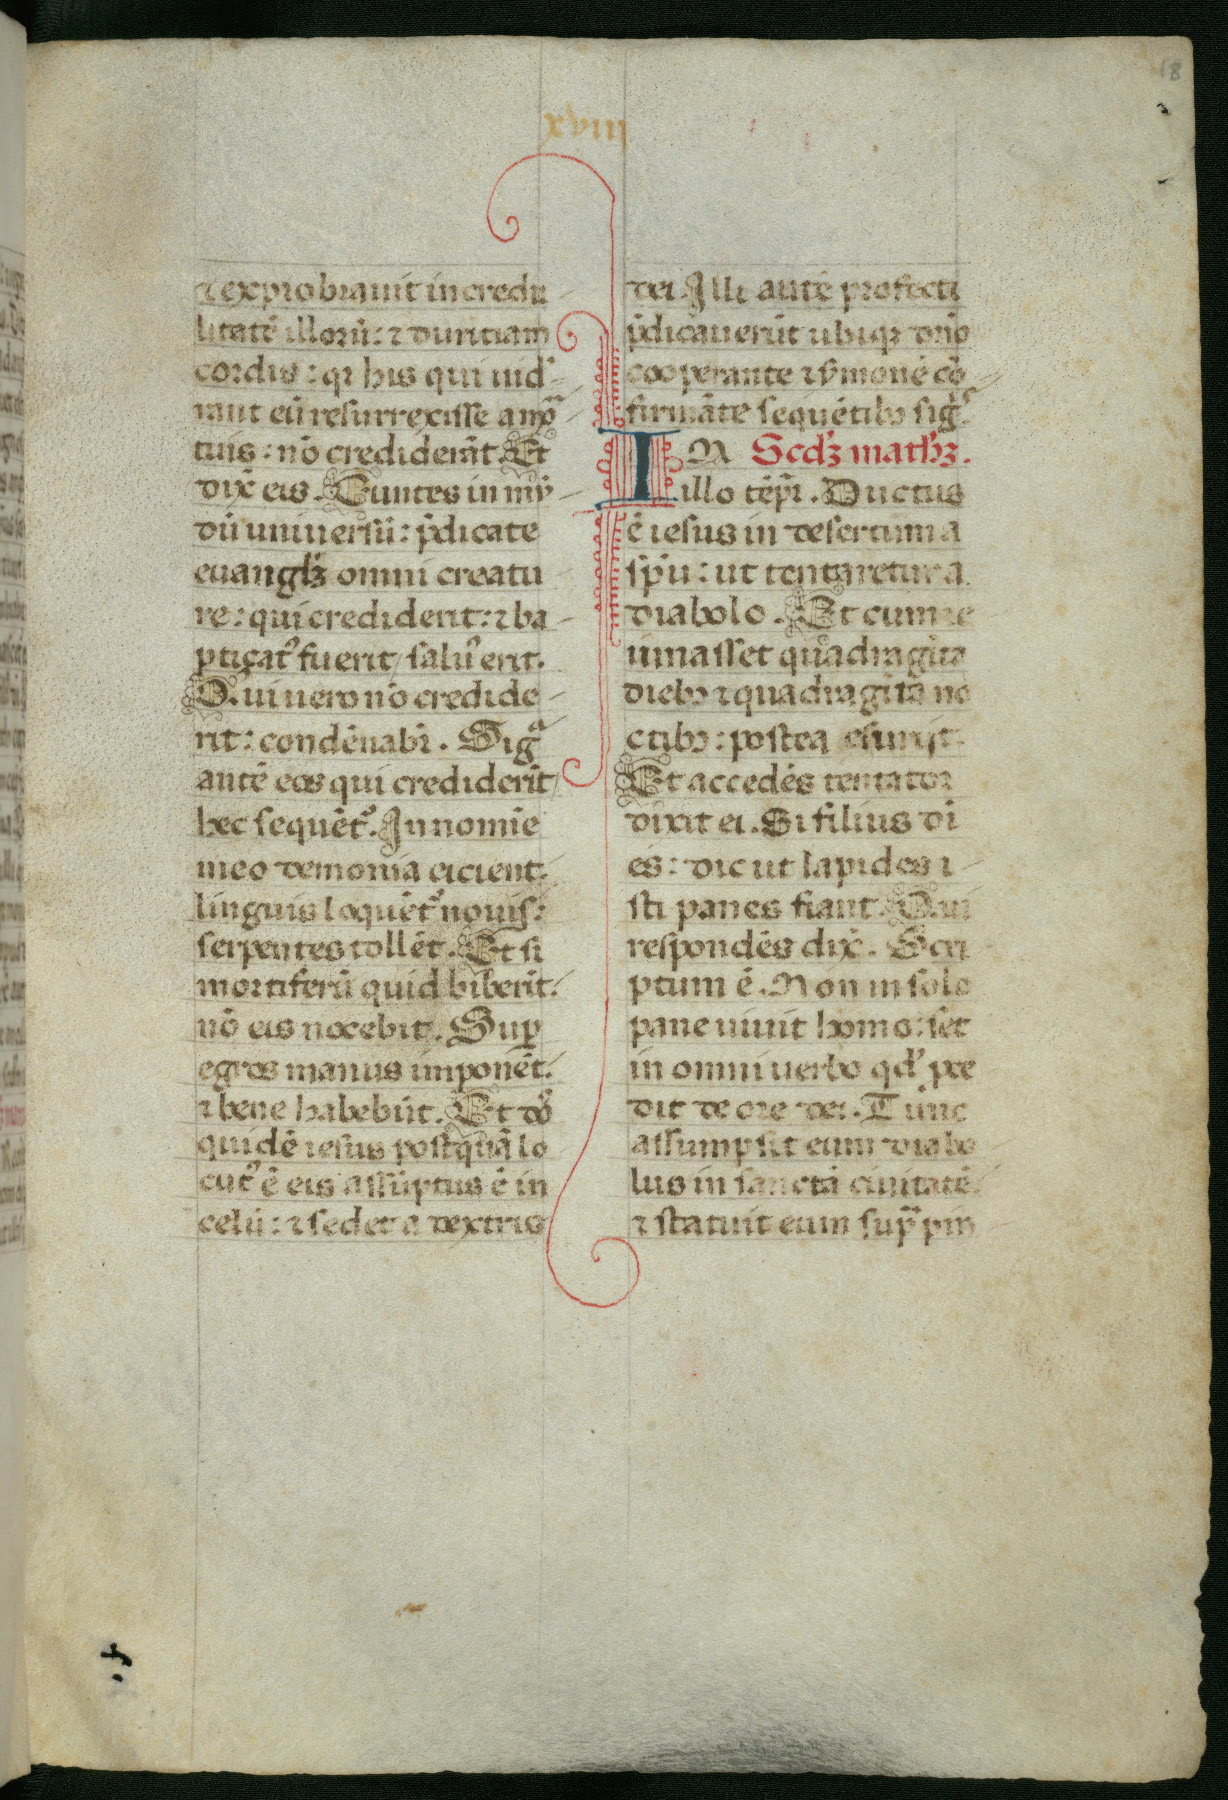 18
xviii
⁊ exprobrauit incredu
litatē illorū: ⁊ duritiam
cordis: qꝛ his qui uid᷑
rant eū resurrexisse a moꝛ
tuis: nō crediderūt. Et
dix̄ eis. Euntes in mū
dū uniuersū: p̄dicate
euanglꝫ omni creatu
re: qui crediderit: ⁊ ba
ptiçatꝰ fuerit / saluꝰ erit.
Qui uero nō credide
rit: condēnabit᷑. Siga
autē eos qui crediderīt
hec sequēt᷑. In nomīe
meo demonia eicient.
linguis loquēt᷑ nouis:
serpentes tollēt. Et si
mortiferū quid biberīt.
nō eis nocebit. Suꝑ
egros manus imponēt.
⁊ bene habebūt. Et dō
quidē iesus postquā lo
cutꝰ ē eis assūptus ē in
celū: ⁊ sedet a dextris
dei. Illi autē profecti
p̄dicauerūt ubiqꝫ dn̄o
cooperante ⁊ s̄monē cō
firmāte sequētibꝫ sigs
IN Scd̄ꝫ math̄ꝫ.
illo tēpr̄. Ductus
ē iesus in desertum a
sp̄u: ut tentaretur a
diabolo. Et cum ie
iunasset quadraginta
diebꝫ ⁊ quadraginta no
ctibꝫ: postea esuriit.
Et accedēs tentator
dixit ei. Si filius di
es: dic ut lapides i
sti panes fiant. Qui
respondēs dix̄. Scri
ptum ē. Non in solo
pane uiuit homo: set
in omni uerbo qd̄ p̱ce
dit de ore dei. Tunc
assumpsit eum diabo
lus in sanctā ciuitatē.
⁊ statuit eum suꝑ pin